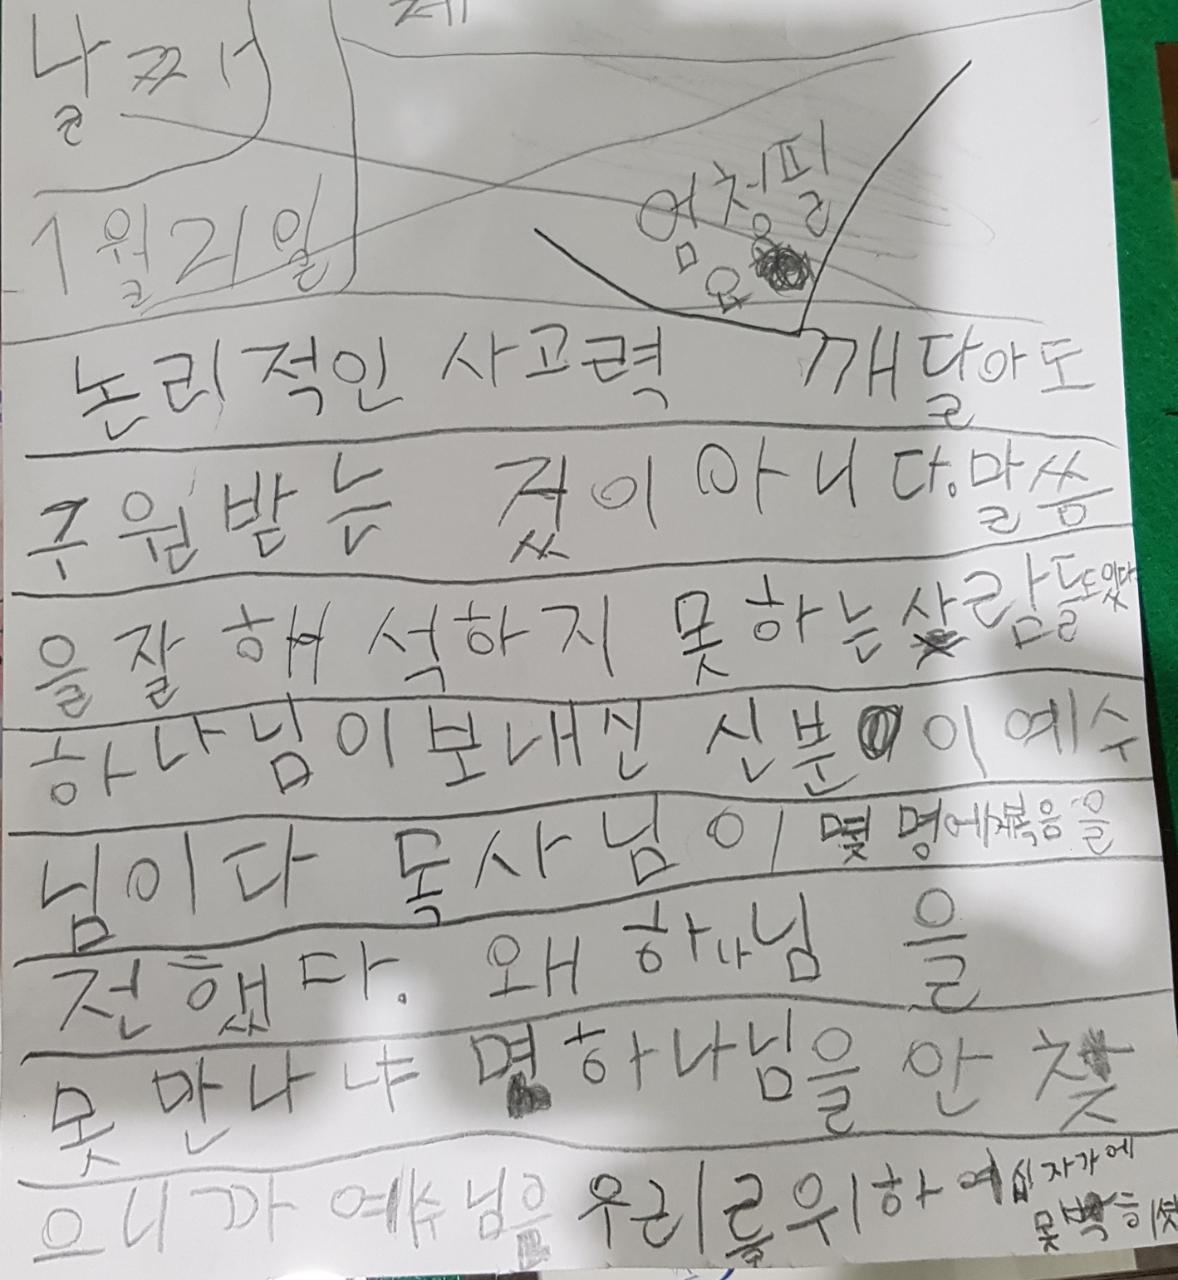 제
날짜
1월21일
엄청필
요
논리적인 사고력 깨달아도
구원받는 것이 아니다.말씀
을 잘 해석하지 못하는 사람들도있다
하나님이보내신 신분이 예수
님이다 목사님이 몇 명에게복음을
전했다. 왜 하나님 을
못 만나냐 면 하나님을 안 찾
으니까 예수님을 우리를위하여십자가에
못박히셨